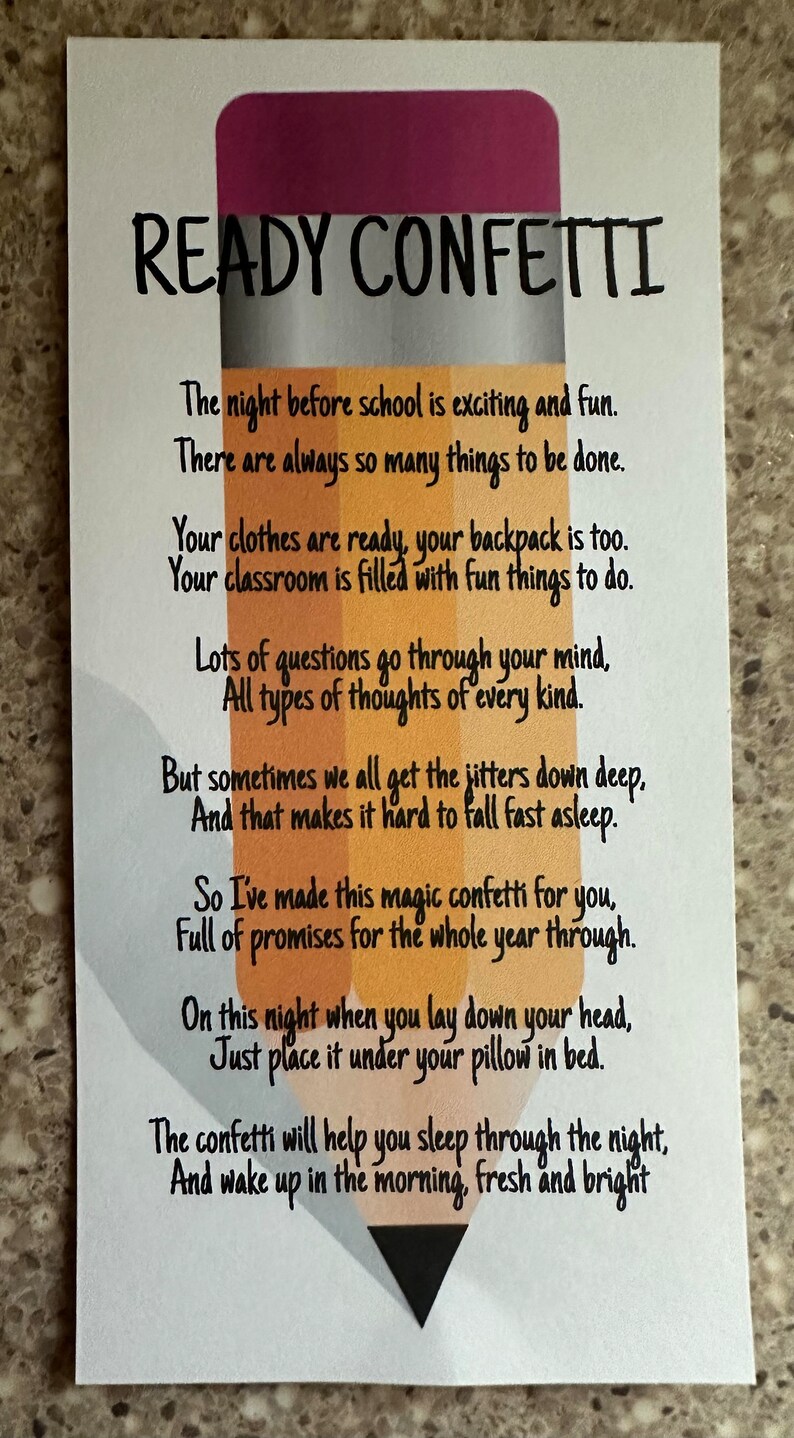 READY CONFETTI
The night before school is exciting and fun.
There are always so many things to be done.
Your clothes are ready, your backpack is too.
Your classroom is filled with fun things to do.
Lots of questions go through your mind,
All types of thoughts of every kind.
But sometimes we all get the jitters down deep,
And that makes it hard to fall fast asleep.
So I've made this magic confetti for you,
Full of promises for the whole year through.
On this night when you lay down your head,
Just place it under your pillow in bed.
The confetti will help you sleep through the night,
And wake up in the morning, fresh and bright